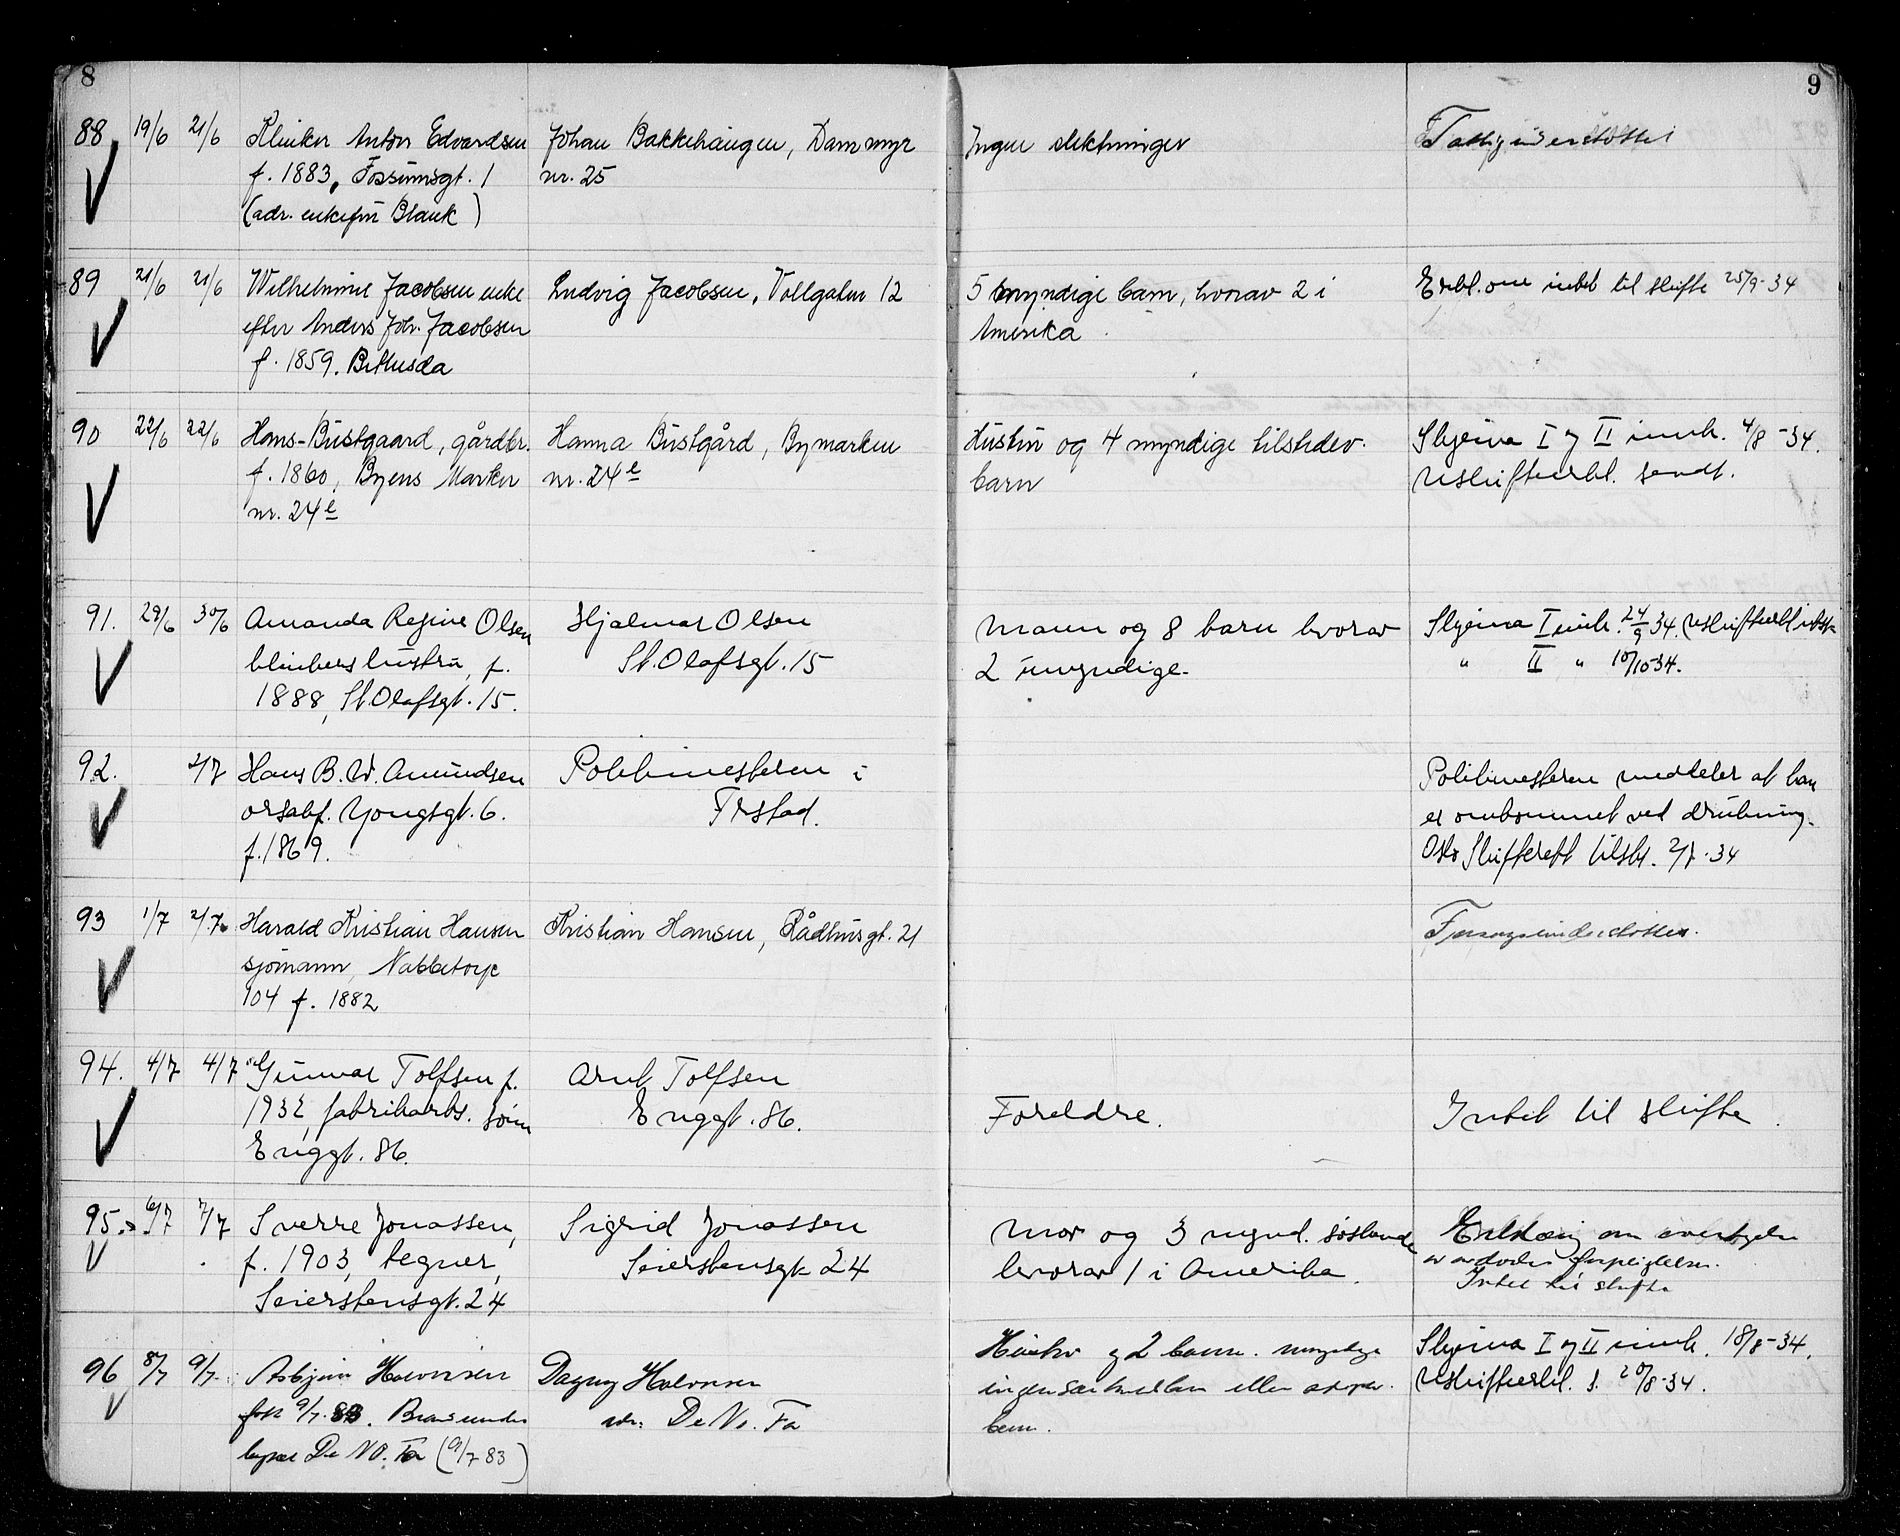 8
9
88 19/6 21/6 Klinker Anton Edvardsen Johan Bakkehaugen, Dammyr Ingen slektninger Fattigunderstøttet
f. 1883, Fossumsgt. 1 nr. 25
(adr. enkefru Blank)
89 21/6 21/6 Wilhelmine Jacobsen enke Ludvig Jacobsen, Vollgaten 12 5 myndige barn, hvorav 2 i Erkl. om intet til skifte 25/9-34
efter Anders Joh. Jacobsen Amerika
f. 1859. Bethesda
90 22/6 22/6 Hans Bustgaard, gårdbr. Hanna Bustgård, Bymarken Hustru og 4 myndige tilstedev. Skjema I og II innk. 4/8-34.
f. 1860, Byens Marker nr. 24e barn Uskifteerkl. sendt.
nr. 24e
91. 29/6 30/6 Amanda Regine Olsen Hjalmar Olsen Mann og 8 barn hvorav Skjema I innk. 24/9 34. Uskifteerkl.
hustru, f. St. Olafsgt. 15 2 umyndige. " II " 10/10-34.
1888, St. Olafsgt. 15.
92. 2/7 Hans B. W. Amundsen Politimesteren i Politimesteren meddeler at han
Yongsgt. 6. Frstad. er omkommet ved drukning.
f. 1869. Oslo Skifterett tilskr. 2/7-34
93 1/7 2/7 Harald Kristian Hansen Kristian Hansen, Rådhusgt. 21 Forsorgsunderstøttet.
sjømann, Nabbetorp
104 f. 1882
94. 4/7 4/7 Gunnar Tolfsen f. Arnt Tolfsen
1932, fabrikarb. sønn Enggt. 86. Foreldre. Intet til skifte.
Enggt. 86.
95. 6/7 7/7 Sverre Jonassen, Sigrid Jonassen Mor og 3 mynd. søskende Erklæring om overtagelse
f. 1903, tegner, Seierstensgt. 24 hvorav 1 i Amerika. av avdødes forpliktelser.
Seierstensgt. 24 Intet til skifte
96 8/7 9/7 Asbjørn Halvorsen Dagny Halvorsen Hustru og 2 barn. umyndige Skjema I og II innk. 18/8-34.
født 9/7.83. adr: De No. Fa ingen særkullbarn eller adopt. Uskifteerkl. s. 20/8-34.
De No. Fa (9/7 83) barn.